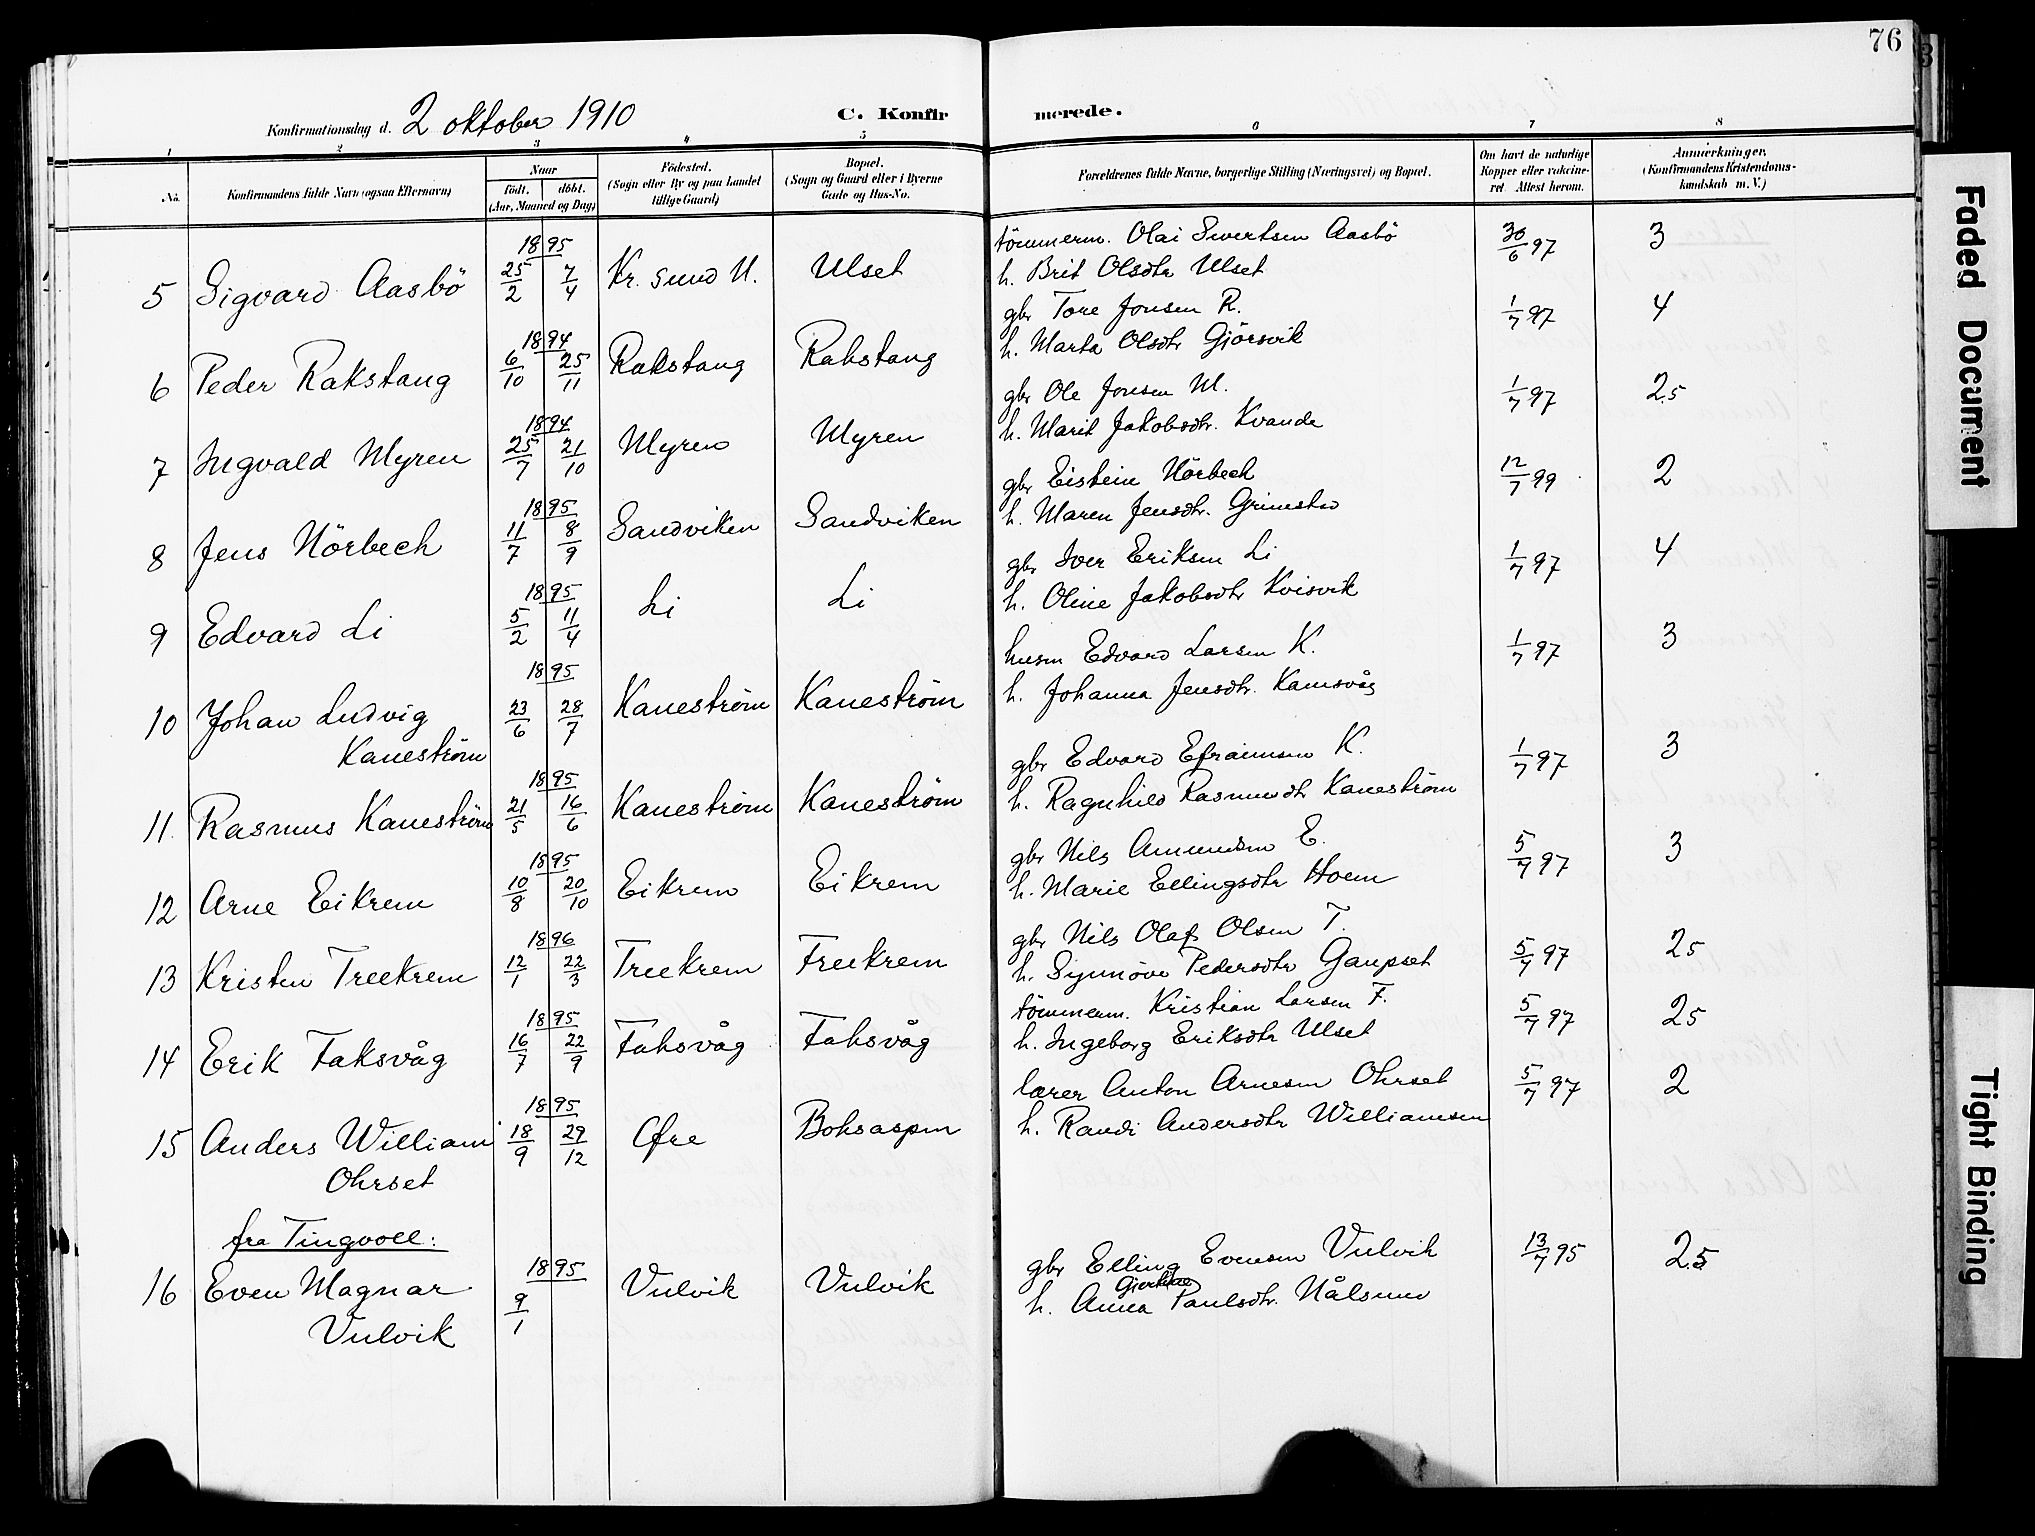 76
Konfirmationsdag d. 2 oktober 1910 C. Konfirmerede.
1 2 3 4 5 6 7 8
No. Konfirmandens fulde Navn (ogsaa Efternavn) Naar født. døbt. (Aar, Maaned og Dag) Fødested. (Sogn eller By og paa Landet tillige Gaard) Bopæl. (Sogn og Gaard eller i Byerne Gade og Hus-No. Forældrenes fulde Navne, borgerlige Stilling (Næringsvei) og Bopæl. Om havt de naturlige Kopper eller vaccineret. Attest herom. Anmærkninger. (Konfirmandens Kristendomskundskab m. V.)
5 Sigvard Aasbö 1895 25/2 7/4 Kr. sund N. Ulset tömmerm. Olai Sivertsen Aasbö 30/6 97 3
h. Brit Olsdtr Ulset
6 Peder Rakstang 1894 6/10 25/11 Rakstang Rakstang gbr Tore Jonsen R. 1/7 97 4
h. Marta Olsdtr Gjörsvik
7 Ingvald Myren 1894 25/7 21/10 Myren Myren gbr Ole Jonsen M. 1/7 97 2.5
h. Marit Jakobsdtr. Kvande
8 Jens Nörbech 1895 11/7 8/9 Sandviken Sandviken gbr Eistein Nörbech 12/7 99 2
h. Maren Jensdtr. Grimstad
9 Edvard Li 1895 5/2 11/4 Li Li gbr Iver Eriksen Li 1/7 97 4
h. Oline Jakobsdtr Kvisvik
10 Johan Ludvig 1895 23/6 28/7 Kaneström Kaneström husm Edvard Larsen K. 1/7 97 3
Kaneström h. Johanna Jensdtr. Kamsvåg
11. Rasmus Kaneström 1895 21/5 16/6 Kaneström Kaneström gbr Edvard Efraimsen K. 1/7 97 3
h. Ragnhild Rasmusdtr Kaneström
12 Arne Eikrem 1895 10/8 20/10 Eikrem Eikrem gbr Nils Amundsen E. 5/7 97 3
h. Marie Ellingsdtr Hoem
13 Kristen Treekrem 1896 12/1 22/3 Treekrem Treekrem gbr Nils Olaf Olsen T. 5/7 97 25
h. Synnöve Pedersdtr Gaupset
14 Erik Faksvåg 1895 16/7 22/9 Faksvåg Faksvåg tömmerm. Kristian Larsen F. 5/7 97 25
h. Ingeborg Eriksdtr Ulset
15 Anders William 1895 18/9 29/12 Öfre Boksaspen lærer Anton Arnesen Ohrset 5/7 97 2
Ohrset h. Randi Andersdtr Williamsen
fra Tingvoll:
16 Even Magnar 1895 9/1 Vulvik Vulvik gbr Elling Evensen Vulvik 13/7 95 2.5
Vulvik h. Anna Gjertine Paulsdtr. Nålsund
Faded Document
Tight Binding